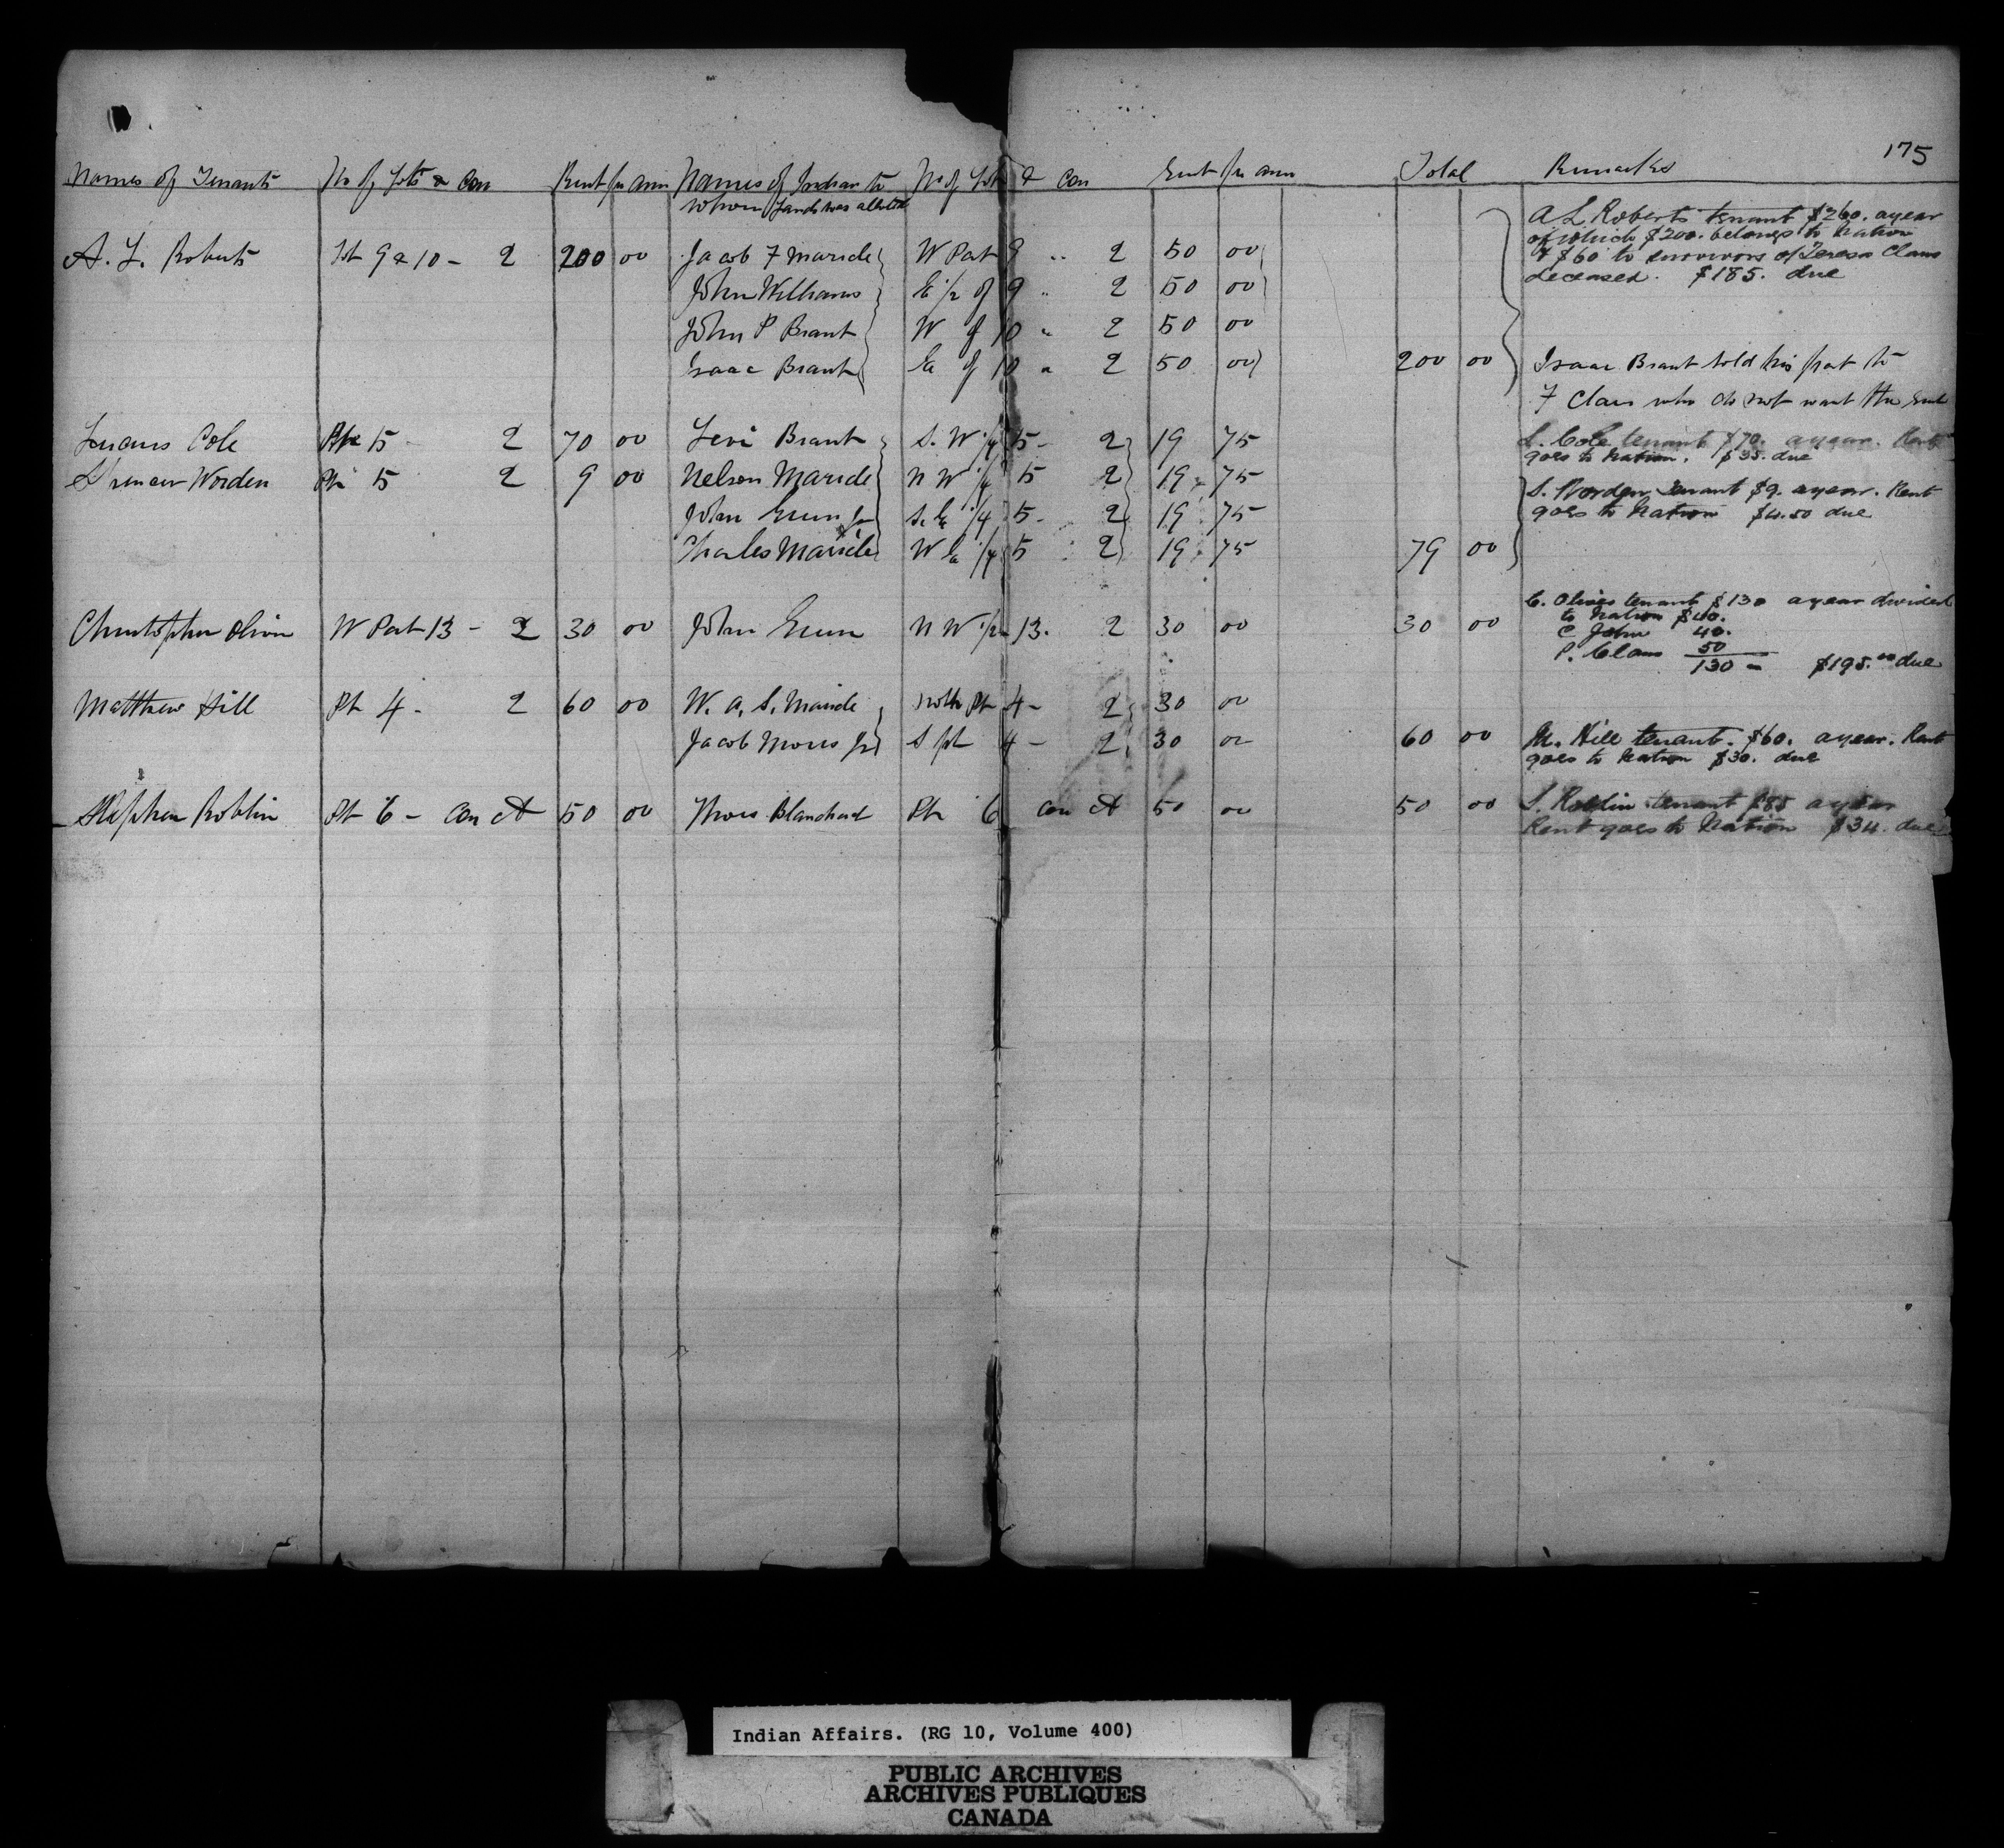 175
Names of Tenants No of Lots & Con Rent per ann Names of Indian to No of Lots & Con Rent per ann Total Remarks
whom Lands was allotted
A L Roberts tenant $260. a year
of which $200. belongs to Nation
A. L. Roberts Lot 9 & 10 - 2 200 00 Jacob F Maricle W Part 9 " 2 50 00 & $60 to survivors of Teresa Claus
deceased. $185. due
John Williams E 1/2 of 9 " 2 50 00
John P Brant W of 10 " 2 50 00
Isaac Brant Ea of 10 " 2 50 00 200 00 Isaac Brant sold his part to
F Claus who do not want the rent
Cole Pt 15 - 2 70 00 Levi Brant S. W 1/4 15 - 2 19 75 L. Cole tenant $70. a year. Rent
goes to Nation. $35. due
Spencer Worden Pt 15 2 9 00 Nelson Maricle N W 1/4 15 2 19 75 S. Worden tenant $9. a year. Rent
John Green Jr S. Ea 1/4 15 - 2 19 75 goes to Nation $4.50 due
Charles Maricle Ea 1/4 15 2 19 75 79 00
C. Oliver tenant $130 a year divided
to Nation $40.
Christopher Oliver W Part 13 - 2 30 00 John Green N W 1/2 13. 2 30 00 30 00 C John 40.
P. Claus 50
130 - $195.00 due
Matthew Hill Pt 4 - 2 60 00 W. A. S. Maricle North Pt 4 - 2 30 00
Jacob Moses Jr S pt 4 - 2 30 00 60 00 M. Hill tenant. $60. a year. Rent
goes to Nation $30. due
Stephen Roblin Pt 6 - Con A 50 00 Thos Blanchard Pt 6 Con A 50 00 50 00 S. Roblin tenant $85 a year
Rent goes to Nation $34. due
Indian Affairs. (RG 10, Volume 400)
PUBLIC ARCHIVES
ARCHIVES PUBLIQUES
CANADA